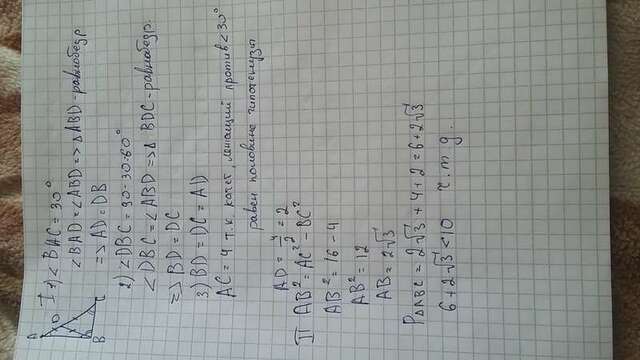 A
D
B
C
I 1) ∠ BAC = 30°
∠BAD = ∠ABD => △ABD - равнобедр
=> AD = DB
2) ∠DBC = 90-30=60°
∠DBC = ∠ABD => △ BDC - равнобедр.
=> BD = DC
3) BD = DC = AD
AC = 4 т.к. катет, лежащий против < 30°
равен половине гипотенузы
AD = 4/2 = 2
II AB² = AC² - BC²
AB² = 16 - 4
AB² = 12
AB = 2√3
P△ABC = 2√3 + 4 + 2 = 6 + 2√3
6 + 2√3 < 10 ч.т.д.